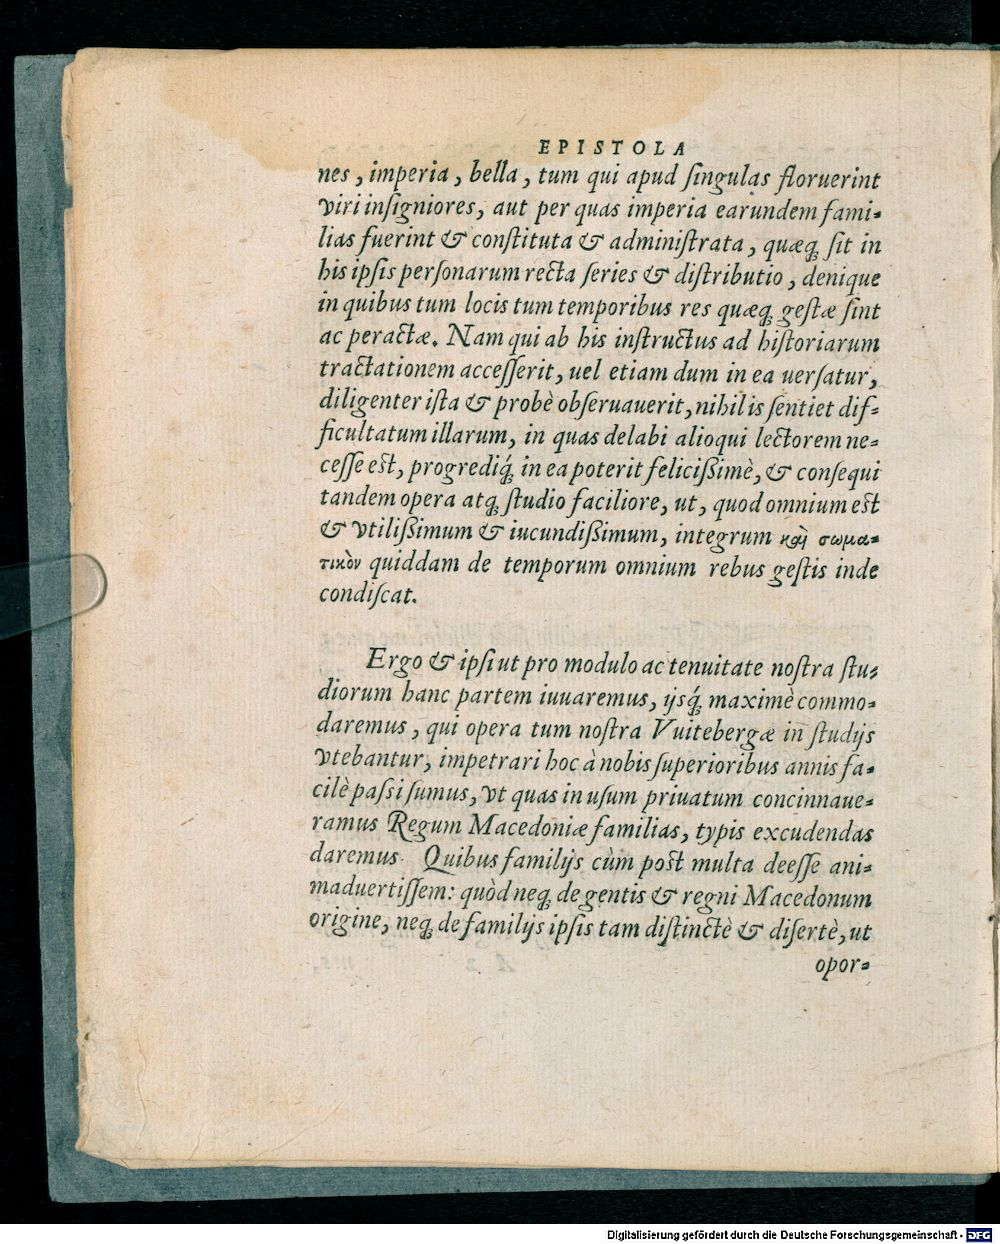 EPISTOLA
nes, imperia, bella, tum qui apud ſingulas floruerint
viri inſigniores, aut per quas imperia earundem fami-
lias fuerint & conſtituta & adminiſtrata, quæqꝫ ſit in
his ipſis perſonarum recta ſeries & diſtributio, denique
in quibus tum locis tum temporibus res quæqꝫ geſtæ ſint
ac peractæ. Nam qui ab his inſtructus ad hiſtoriarum
tractationem acceſſerit, uel etiam dum in ea uerſatur,
diligenter iſta & probè obſeruauerit, nihil is ſentiet dif-
ficultatum illarum, in quas delabi alioqui lectorem ne-
ceſſe est, progrediq́ꝫ in ea poterit felicißimè, & conſequi
tandem opera atqꝫ ſtudio faciliore, ut, quod omnium est
& vtilißimum & iucundißimum, integrum καὶ σωμα-
τικὸν quiddam de temporum omnium rebus geſtis inde
condiſcat.
Ergo & ipſi ut pro modulo ac tenuitate noſtra ſtu-
diorum hanc partem iuuaremus, ijsq́ꝫ maximè commo-
daremus, qui opera tum noſtra Vuitebergæ in ſtudijs
vtebantur, impetrari hoc à nobis ſuperioribus annis fa-
cilè paſsi ſumus, vt quas in uſum priuatum concinnaue-
ramus Regum Macedoniæ familias, typis excudendas
daremus. Quibus familijs cùm post multa deeſſe ani-
maduertiſſem: quòd neqꝫ de gentis & regni Macedonum
origine, neqꝫ de familijs ipſis tam diſtinctè & diſertè, ut
opor-
Digitalisierung gefördert durch die Deutsche Forschungsgemeinschaft - DFG